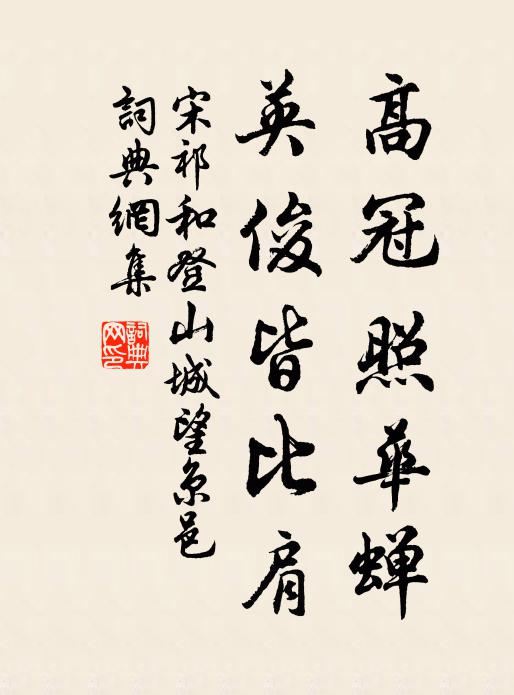 高冠照華蝉
英俊皆比肩
宋祁和登山城望京邑
詞典網集
詞典网印